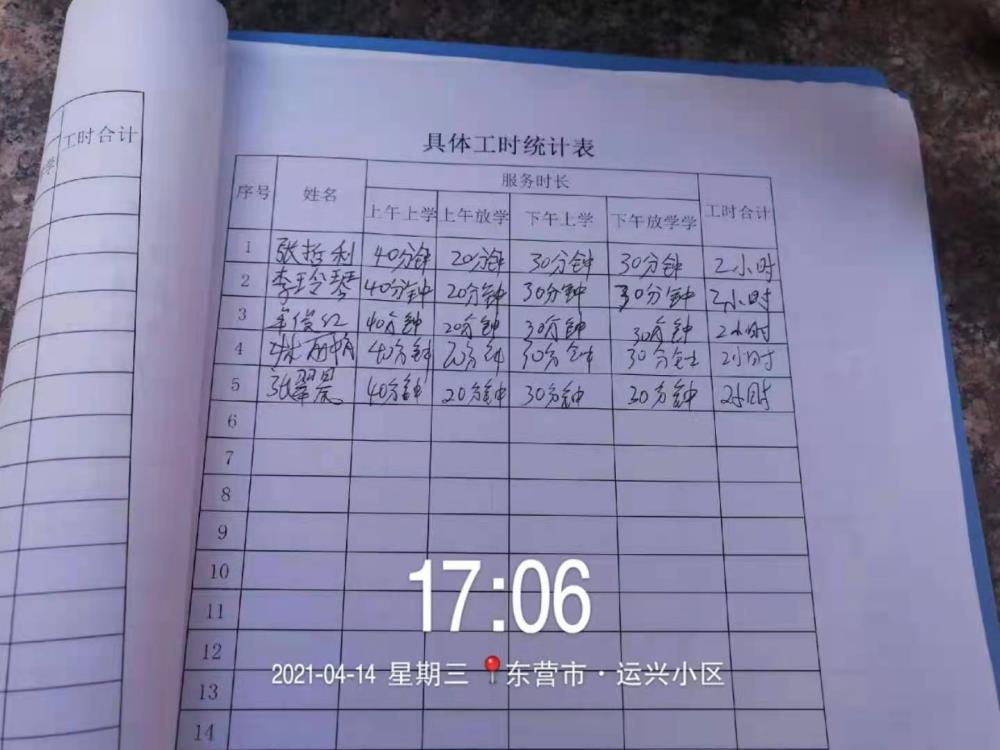 工时合计
学
具体工时统计表
序号 姓名 服务时长 工时合计
上午上学 上午放学 下午上学 下午放学学
1 张哲利 40分钟 20分钟 30分钟 30分钟 2小时
2 李玲琴 40分钟 20分钟 30分钟 30分钟 2小时
3 40分钟 20分钟 30分钟 30分钟 2小时
4 40分钟 20分钟 30分钟 30分钟 2小时
5 张翠晨 40分钟 20分钟 30分钟 30分钟 2小时
6
7
8
9
10
11
12
13
14
17:06
2021-04-14 星期三 东营市·运兴小区